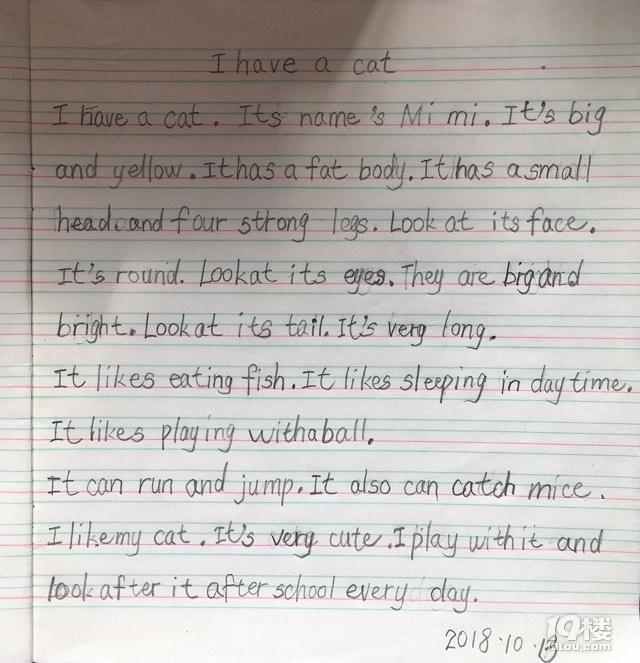 I have a cat
I have a cat. Its name's Mi mi. It's big
and yellow. It has a fat body. It has a small
head and four strong legs. Look at its face.
It's round. Look at its eyes. They are big and
bright. Look at its tail. It's very long.
It likes eating fish. It likes sleeping in day time.
It likes playing with a ball.
It can run and jump. It also can catch mice.
I like my cat. It's very cute. I play with it and
look after it after school every day.
2018.10.
19楼
19lou.com